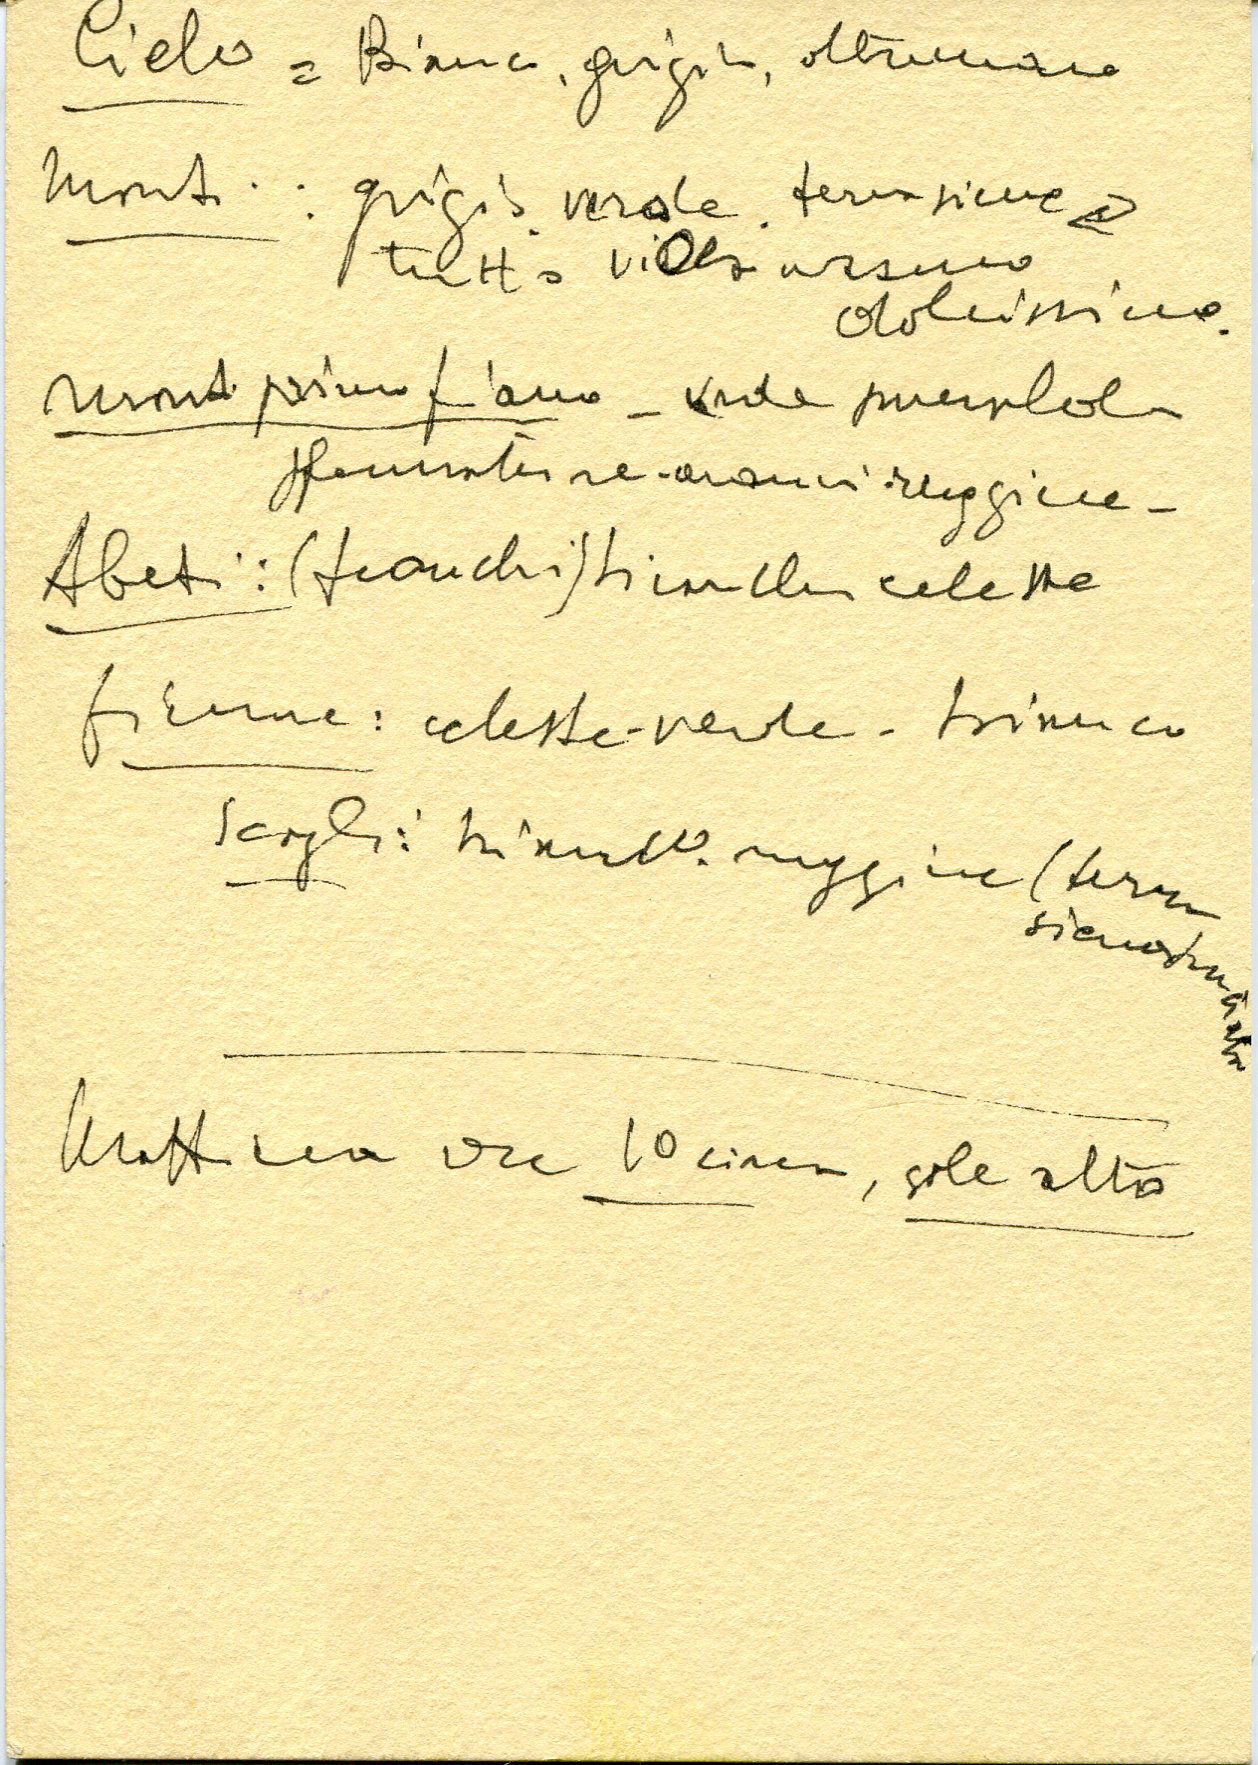 Cielo = Bianco, grigio, oltremare
Monti: grigio. verde. terra siena
tutto viola
dolcissimo.
Monti primo piano - verde smeraldo
sfumature - aranci-ruggine -
Abeti: (tronchi) celeste
fiume: celeste-verde - bianco
Scogli: ruggine (terra
siena
Mattina ore 10 circa, sole alto